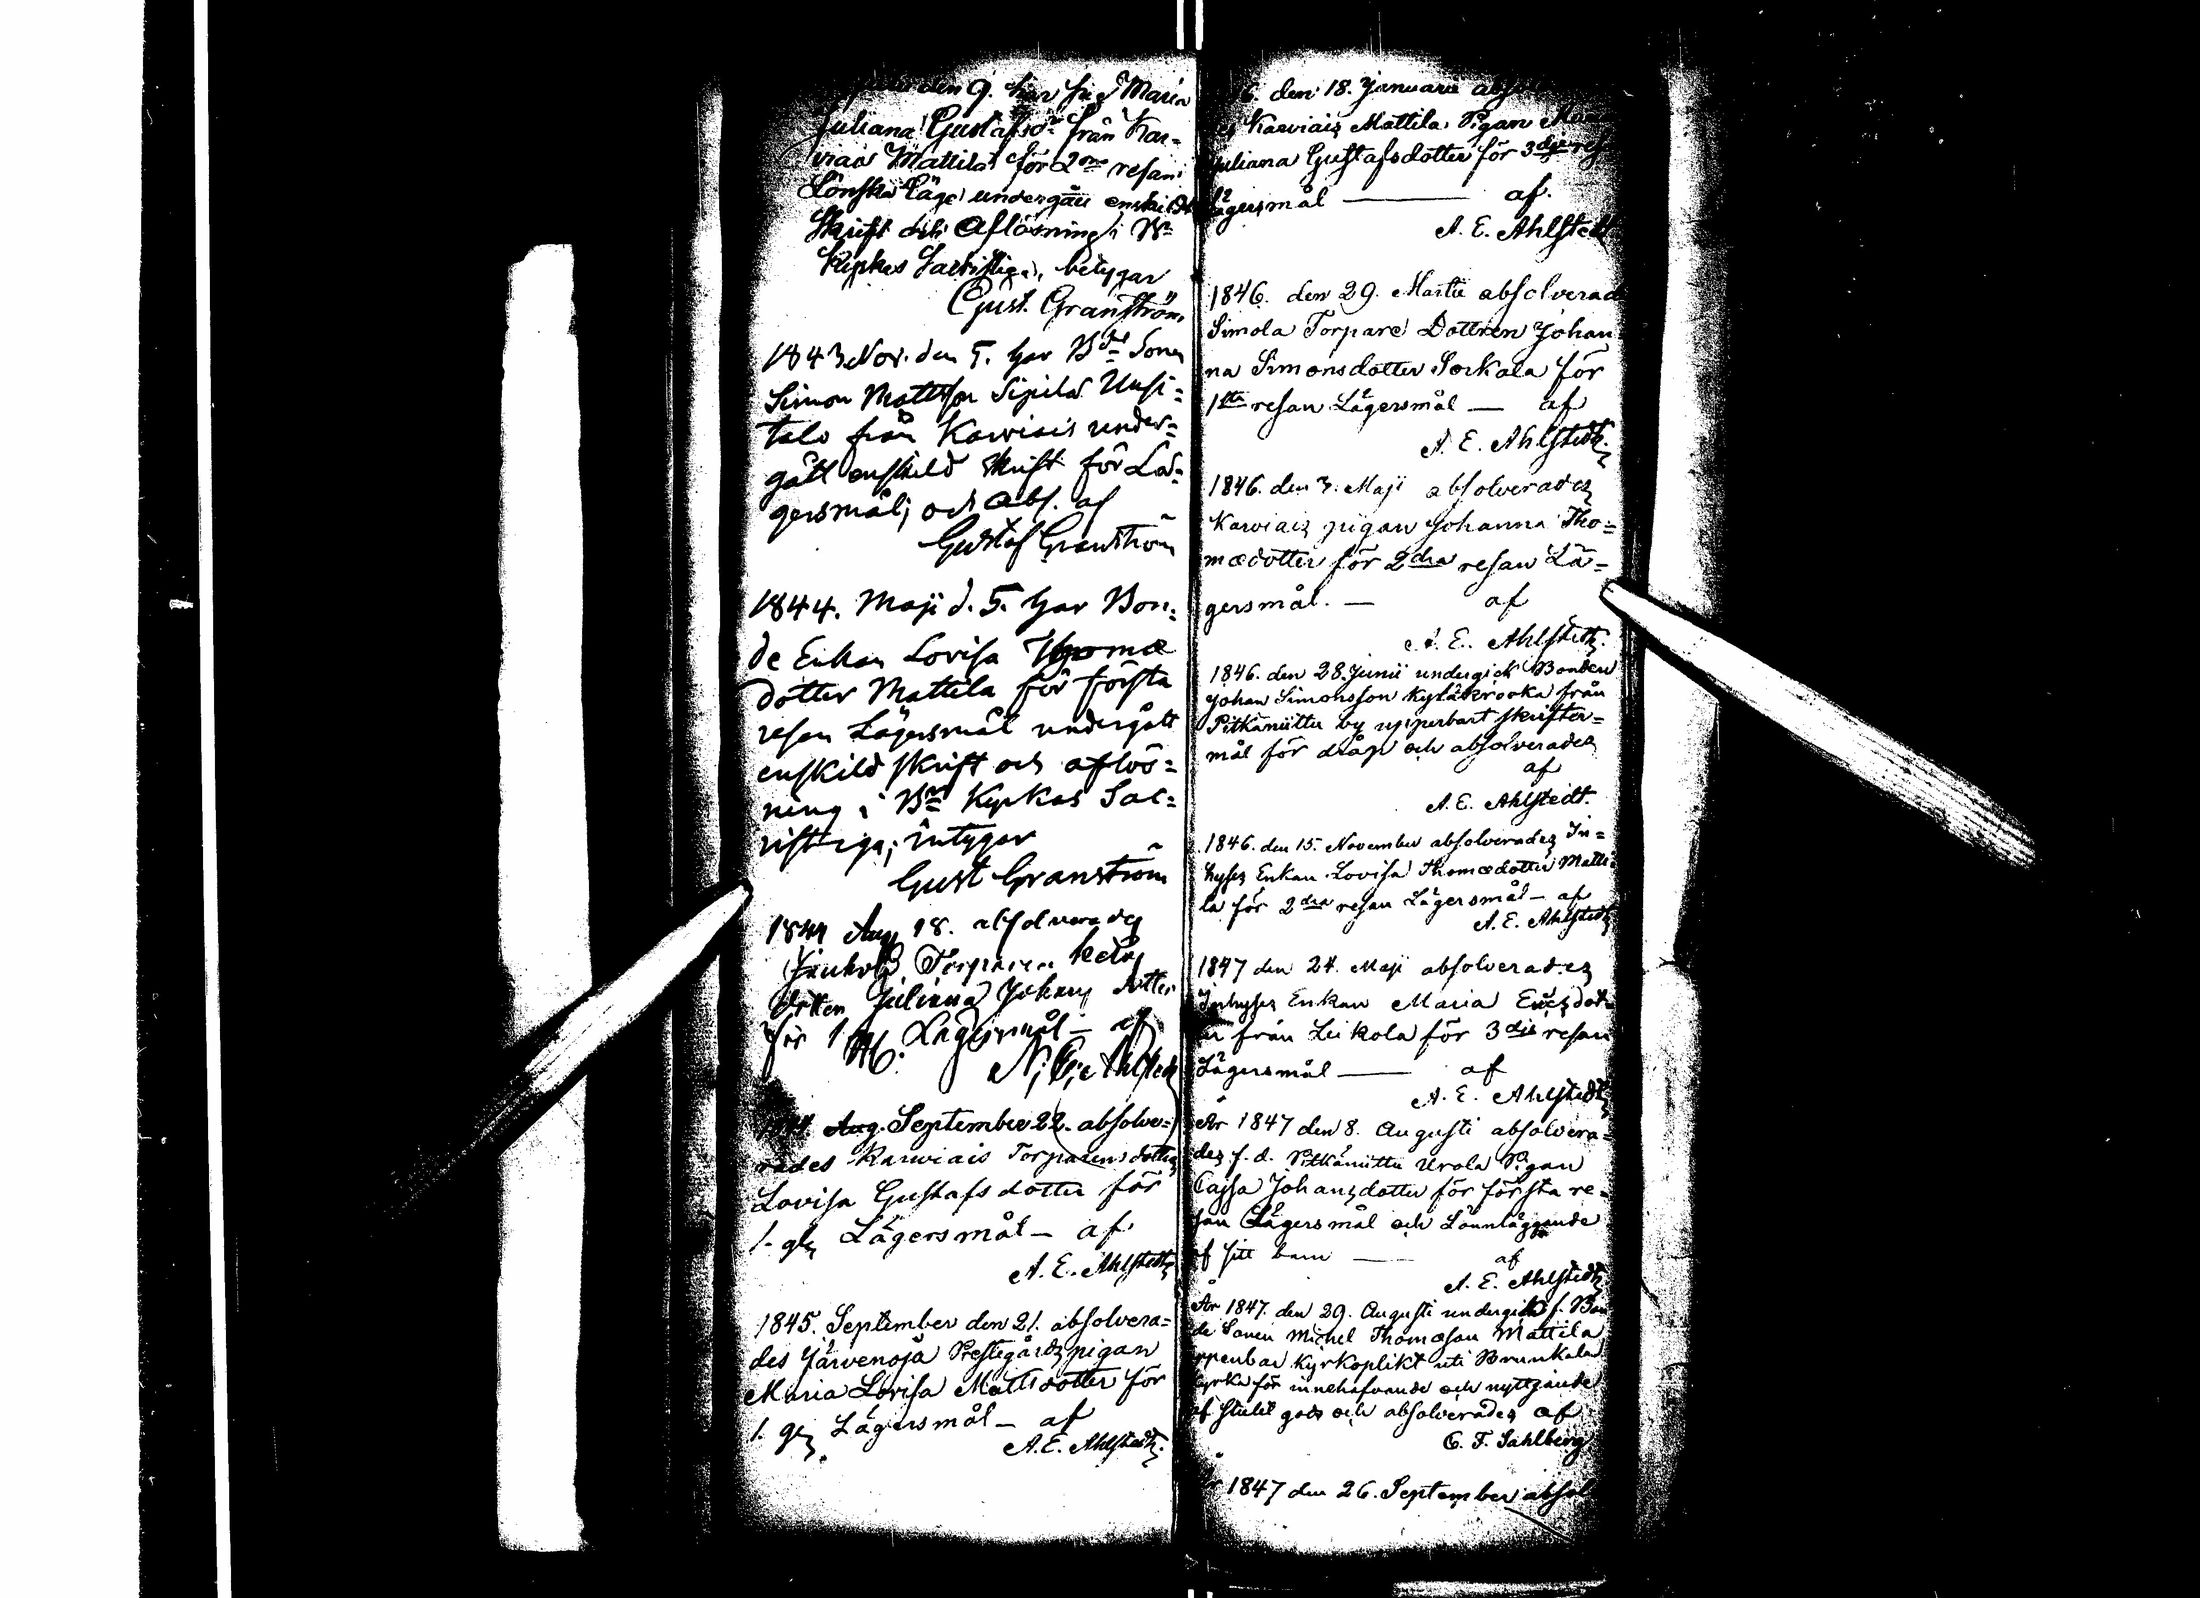 den 9. har Maria
Juliana Gustafsdr från Kar-
viais Mattila för 2dra resan
Lönska Läge undergått enskildt
Skrift och Aflösning i Bn
Kyrkos Sacristiga, betygar
Gust. Granström
1843 Nov. den 5. har Bde Sonen
Simon Mattsson Sipilä Uusi-
talo från Karviais under-
gått enskild skrift för Lä-
gersmål; och Abs. af
Gustaf Granström
1844. Maji d. 5. har Bon-
de Enkan Lovisa Thomæ
dotter Mattila för första
resan Lägersmål undergått
enskild skrift och aflös-
ning i Bn Kyrkas Sac-
ristiga; intygar
Gust Granström
1844 Aug 18. absolverades
Torparen
dottren Juliana Johans dotter
för 1 Lägersmål – af
A. E. Ahlstedt
1844. Aug. September 22. absolve-
rades Karviais Torparens dotter
Lovisa Gustafs dotter för
1. gg Lägersmål – af
A. E. Ahlstedt
1845. September den 21. absolvera-
des Järvenoja Prestegårds pigan
Maria Lovisa Mattsdotter för
1. gg Lägersmål – af
A. E. Ahlstedt.
6. den 18. Januarii
Karviais Mattila Pigan
Juliana Gustafsdotter för 3dje
Lägersmål — af.
A. E. Ahlstedt
1846. den 29. Martii absolverad
Simola Torpare Dottren Johan
na Simonsdotter Sorkala för
1sta resan Lägersmål — af
A. E. Ahlstedt.
1846. den 3. Maji absolverades
Karviais pigan Johanna Tho-
mædotter för 2dra resan Lä-
gersmål. — af
A. E. Ahlstedt.
1846. den 28. Junii undergick Bonden
Johan Simonsson Kyläkrooka från
Pitkäniittu by uppenbart skrifter-
mål för dråp och absolverades
af
A. E. Ahlstedt.
1846. den 15. November absolverades In-
hyses Enkan Lovisa Thomædotter Matti
la för 2dra resan Lägersmål – af
A. E. Ahlstedt
1847 den 24. Maji absolverades
Inhyses Enkan Maria Ericsdot
er från Leikola för 3dje resan
Lägersmål — af
A. E. Ahlstedt
År 1847 den 8. Augusti absolvera-
des f. d. Pitkäniittu Urola Pigan
Cajsa Johansdotter för första re-
san Lägersmål och Lönnläggande
af sitt barn — af
A. E. Ahlstedt
År 1847. den 29. Augusti undergick f. Bon
de Sonen Michel Thomæson Mattila
uppenbar Kyrkoplikt uti Brunkala
kyrka för innehafvande och nyttjande
af stulit gods och absolverades af
C. F. Sahlberg
År 1847 den 26. September absol